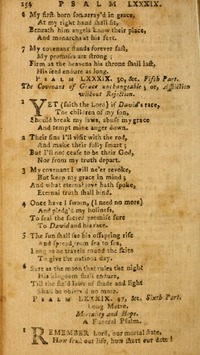 154 PSALM LXXXIX.
6 My first born son array'd in grace,
At my right hand shall sit,
Beneath him angels know their place,
And monarchs at his feet.
7 My covenant stands forever fast,
My promises are strong;
Firm as the heavens his throne shall last,
His seed endure as long.
PSALM LXXXIX. 30, &c. Fifth Part.
The Covenant of Grace unchangeable; or, Affliction
without Rejection.
1 YET (saith the Lord) if David's race,
The children of my son,
Should break my laws, abuse my grace
And tempt mine anger down.
2 Their sins I'll visit with the rod,
And make their folly smart;
But I'll not cease to be their God,
Nor from my truth depart.
3 My covenant I will ne'er revoke,
But keep my grace in mind;
And what eternal love hath spoke,
Eternal truth shall bind.
4 Once have I sworn, (I need no more)
And pledg'd my holiness,
To seal the sacred promise sure
To David and his race.
5 The sun shall see his offspring rise
And spread from sea to sea,
Long as he travels round the skies
To give the nations day.
6 Sure as the moon that rules the night
His kingdom shall endure,
Till the fix'd laws of shade and light
Shall be observ'd no more.
PSALM LXXXIX. 47, &c. Sixth Part.
Long Metre.
Mortality and Hope.
A Funeral Psalm.
1 REMEMBER Lord, our mortal state,
How frail our life, how short our date!